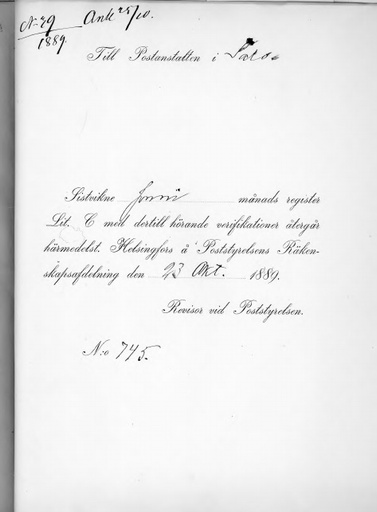 N:29 Ank 25/10.
1889.
Till Postanstalten i
Sistvikne Juni månads register
Lit. C med dertill hörande verifikationer återgår
härmedelst. Helsingfors å Poststyrelsens Räken-
skapsafdelning den 23 Okt. 1889.
Revisor vid Poststyrelsen.
N:o 745.